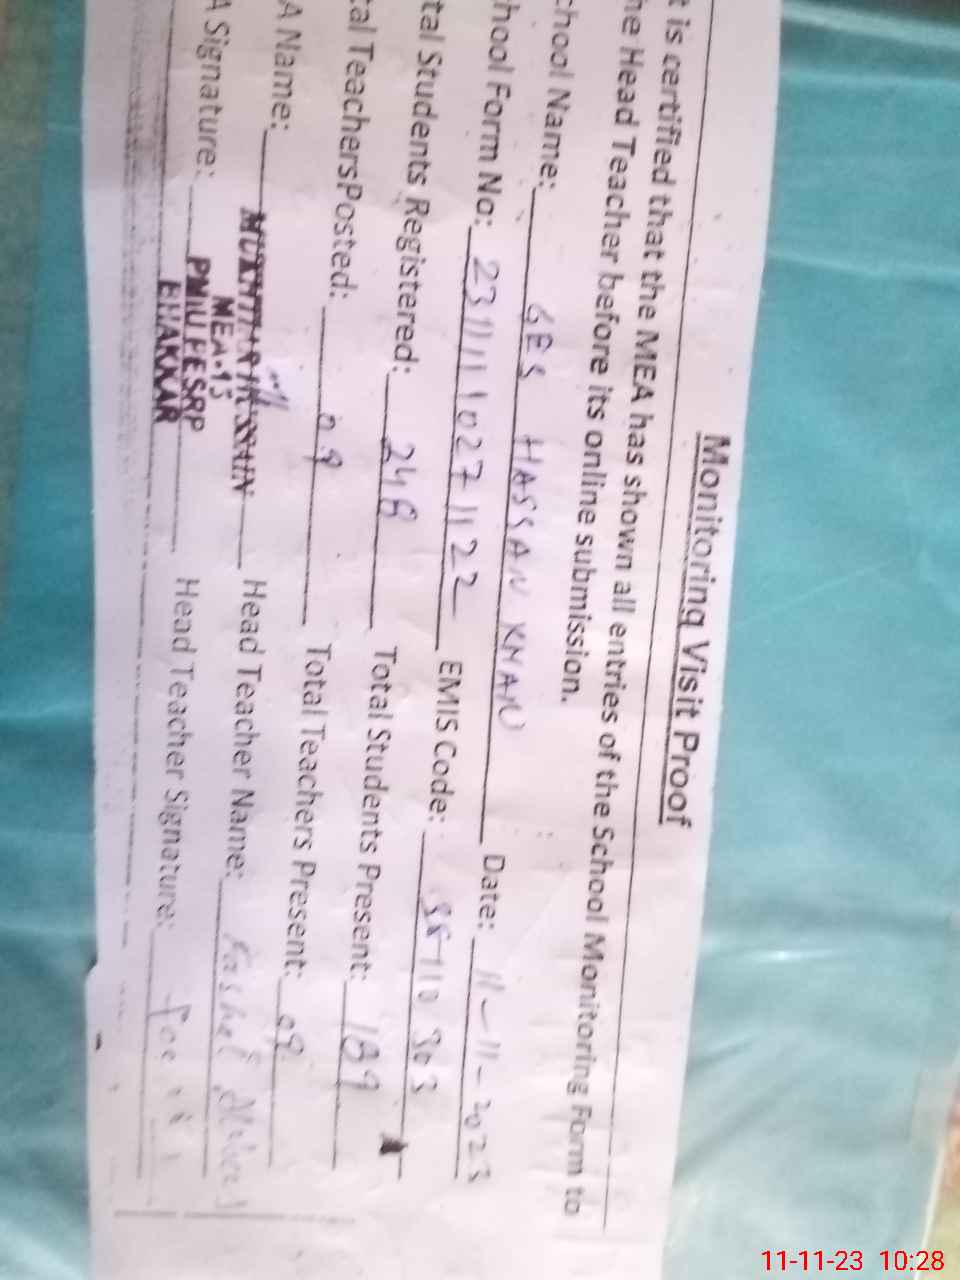 Monitoring Visit Proof
t is certified that the MEA has shown all entries of the School Monitoring Form to
he Head Teacher before its online submission.
chool Name: GES HASSAN KHAN Date: 11-11-2023
hool Form No: EMIS Code:
tal Students Registered: 248 Total Students Present: 189
tal TeachersPosted: 09 Total Teachers Present: 09
A Name: MUKHTIAR HUSSAIN Head Teacher Name:
MEA-15
A Signature: PMIU PESRP Head Teacher Signature:
BHAKKAR
11-11-23 10:28